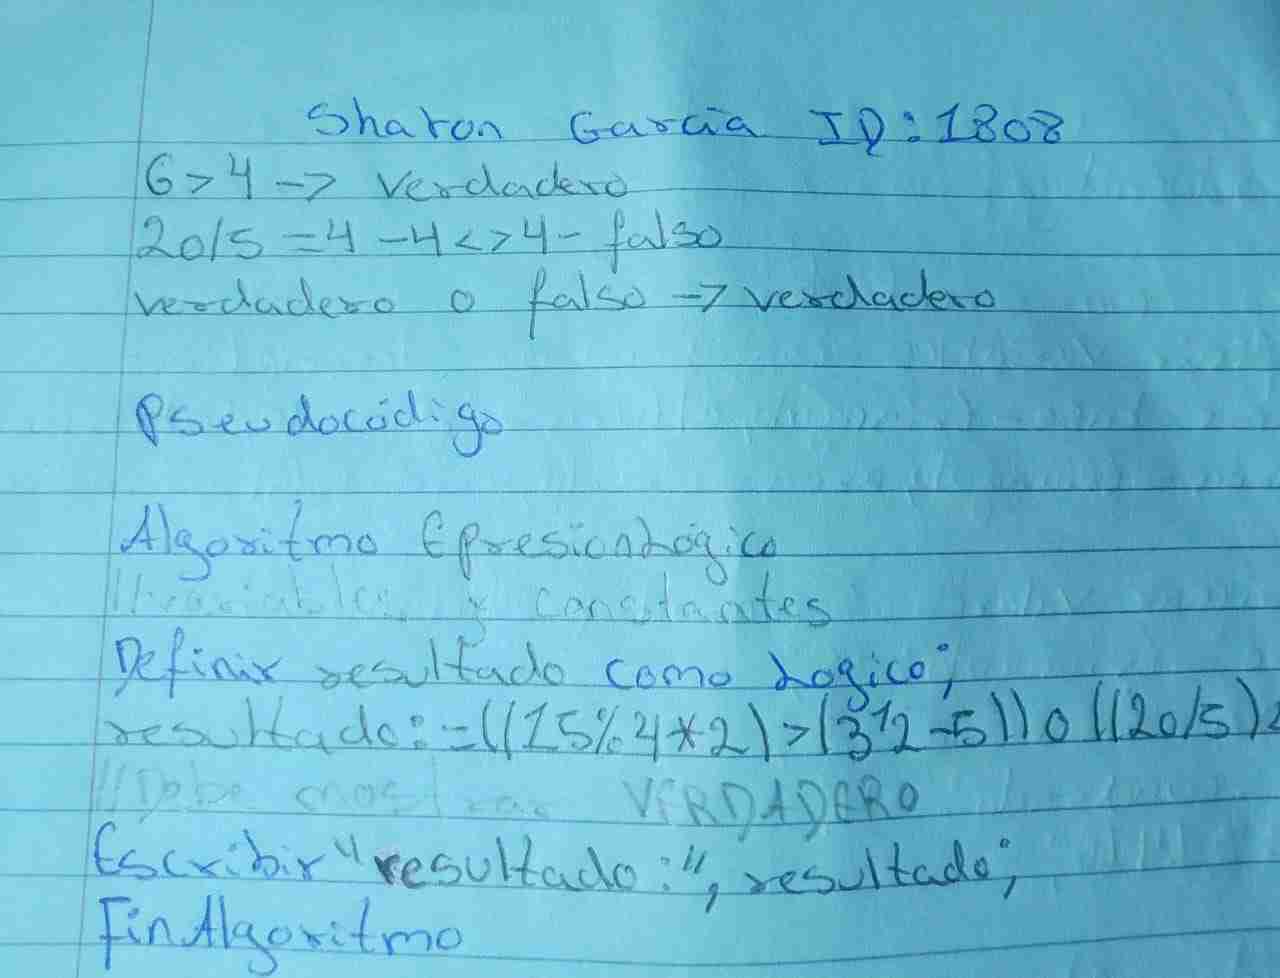 Sharon García ID:1808
6>4 -> verdadero
20/5 =4 -4<>4- falso
verdadero o falso -> verdadero
Pseudocódigo
Algoritmo EpresionLógico
//variables y constantes
Definir resultado como Logico;
resultado:=((15%4*2)>(3^2-5)) o ((20/5)<
//Debe mostrar VERDADERO
Escribir "resultado:", resultado;
FinAlgoritmo